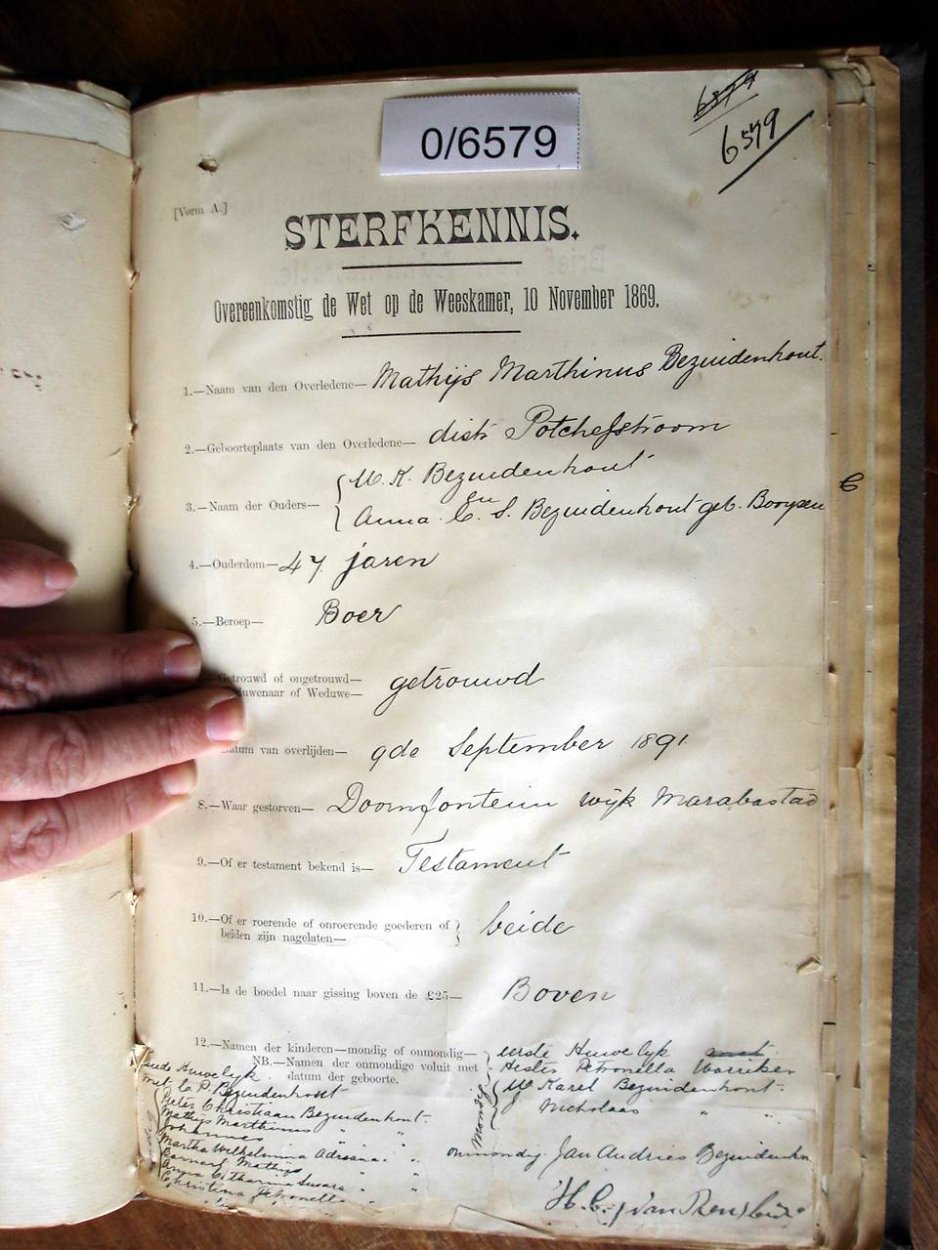 6579
0/6579
6579
[Vorm A.]
STERFKENNIS.
Overeenkomstig de Wet op de Weeskamer, 10 November 1869.
1.—Naam van den Overledene— Mathijs Marthinus Bezuidenhout.
2.—Geboorteplaats van den Overledene— distr Potchefstroom
3.—Naam der Ouders— W. K. Bezuidenhout
en
Anna C. S. Bezuidenhout geb. Booysen
4.—Ouderdom— 47 jaren
5.—Beroep— Boer
Getrouwd of ongetrouwd—
Weduwe— getrouwd
Datum van overlijden— 9de September 1891
8.—Waar gestorven— Doornfontein wijk Marabastad
9.—Of er testament bekend is— Testament
10.—Of er roerende of onroerende goederen of
beiden zijn nagelaten— beide
11.—Is de boedel naar gissing boven de £25— Boven
12.—Namen der kinderen—mondig of onmondig— eerste Huwelijk
NB.—Namen der onmondige voluit met Hester Petronella
datum der geboorte. W. Karel Bezuidenhout.
Nicholaas " "
Mondig
onmondig Jan Andries
Huwelijk
met C. P. Bezuidenhout
Pieter Christiaan Bezuidenhout.
Mathijs Marthinus " "
Johannes " "
Martha Wilhelmina Adriana " "
Barnard Mathijs " "
Anna Catharina " "
Christina Petronella
H. C. J. van